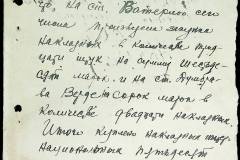 го, на ст. Ватерлоо сего
числа произведен закупка
накладных в количестве трид-
цати штук на сумму шесть-
сят марок и на ст.
ва Верде сорок марок в
количестве двадцати накладных.
Итого куплено накладных интер-
национальных пятьдесят